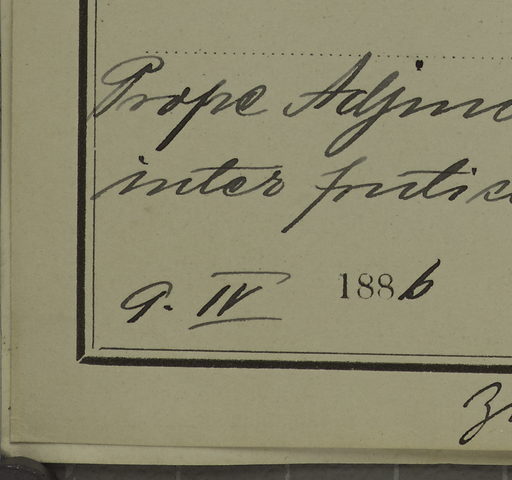 Prope Adjim
inter frutic
9. IV 1886